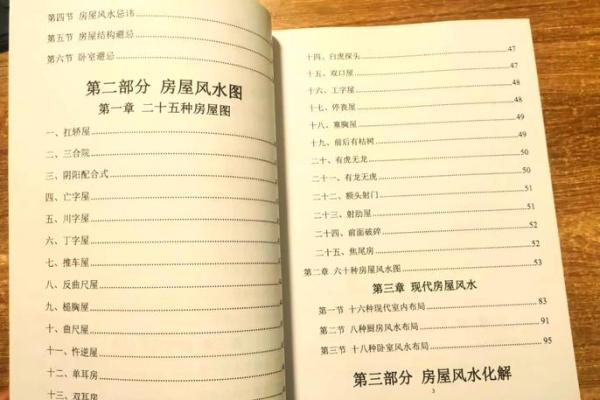 第四节 房屋风水忌讳
第五节 房屋结构避忌
第六节 卧室避忌
第二部分 房屋风水图
第一章 二十五种房屋图
一、扛轿屋
二、三合院
三、阴阳配合式
四、亡字屋
五、川字屋
六、丁字屋
七、推车屋
八、反曲尺屋
九、槌胸屋
十、曲尺屋
十一、忤逆屋
十二、单耳房
十三、双耳房
十四、白虎探头 47
十五、双口屋 48
十六、工字屋 48
十七、停丧屋 48
十八、塞胸屋 49
十九、前后有枯树 49
二十、有虎无龙 50
二十一、有龙无虎 50
二十二、额头射门 51
二十三、射肋屋 51
二十四、前面破碎 52
二十五、焦尾房 52
第二章 六十种房屋风水图 53
第三章 现代房屋风水
第一节 十六种现代室内布局 83
第二节 八种厨房风水布局 91
第三节 十八种卧室风水布局 95
第三部分 房屋风水化解
3